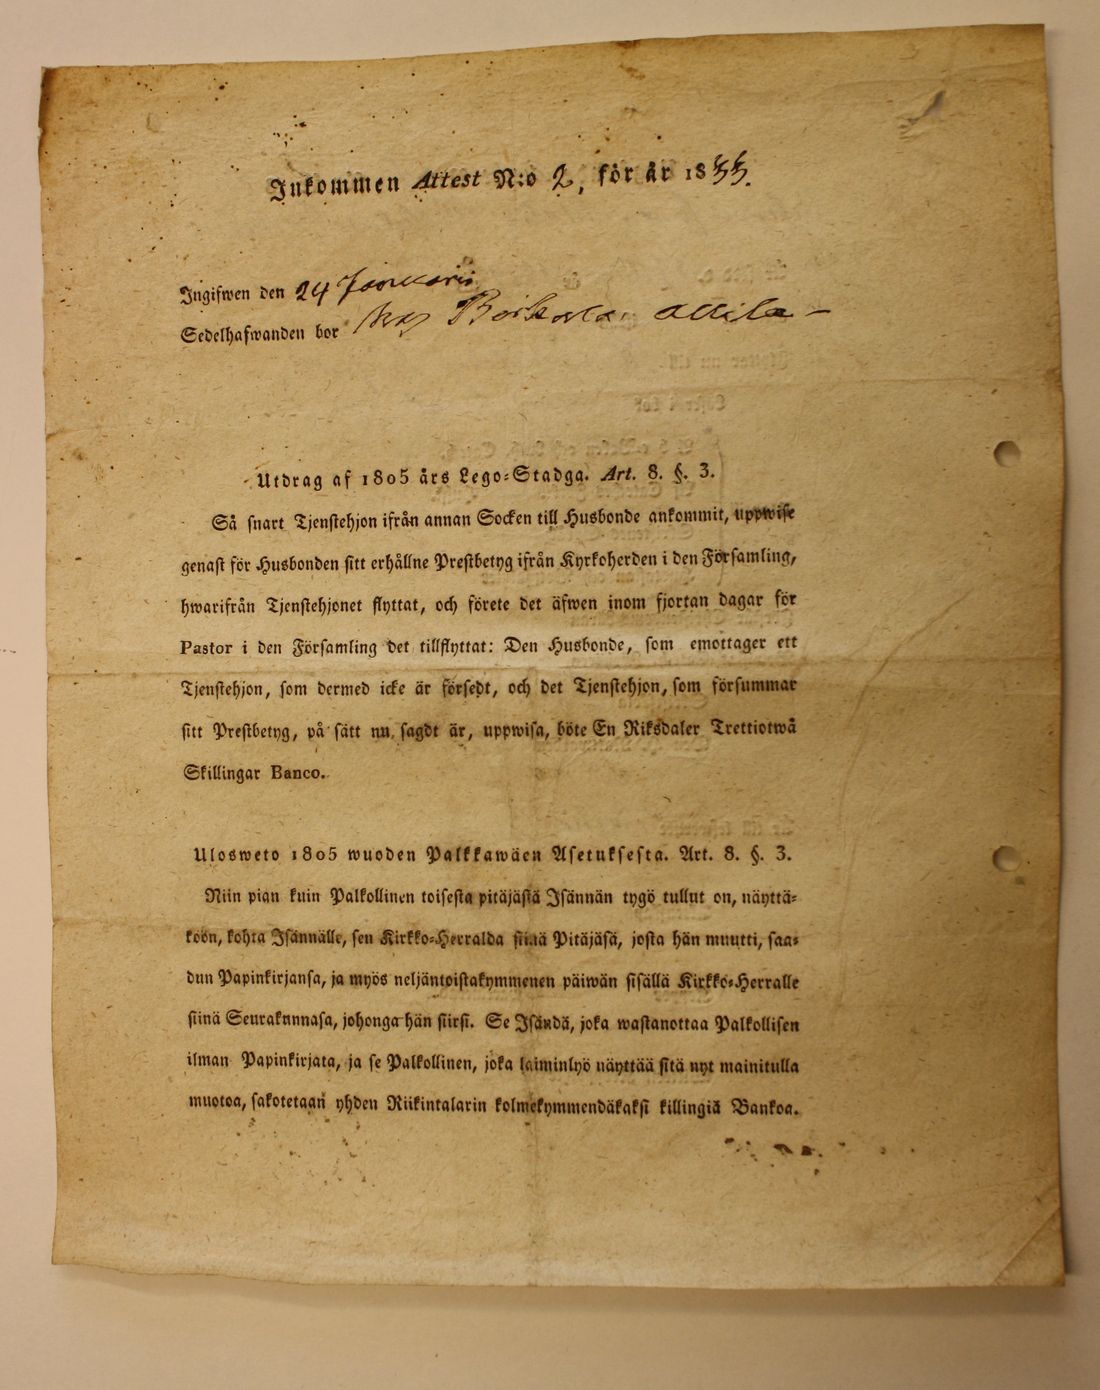 Inkommen Attest N:o 2, för år 1833.
Ingifwen den 24 Januarii
Sedelhafwanden bor
Utdrag af 1805 års Lego-Stadga. Art. 8. §. 3.
Så snart Tjenstehjon ifrån annan Socken till Husbonde ankommit, uppwise
genast för Husbonden sitt erhållne Prestbetyg ifrån Kyrkoherden i den Församling,
hwarifrån Tjenstehjonet flyttat, och förete det äfwen inom fjortan dagar för
Pastor i den Församling det tillflyttat: Den Husbonde, som emottager ett
Tjenstehjon, som dermed icke är försedt, och det Tjenstehjon, som försummar
sitt Prestbetyg, på sätt nu sagdt är, uppwisa, böte En Riksdaler Trettiotwå
Skillingar Banco.
Ulosweto 1805 wuoden Palkkawäen Asetuksesta. Art. 8. §. 3.
Niin pian kuin Palkollinen toisesta pitäjästä Isännän tygö tullut on, näyttä-
köön, kohta Isännälle, sen Kirkko-Herralda siinä Pitäjäsä, josta hän muutti, saa-
dun Papinkirjansa, ja myös neljäntoistakymmenen päiwän sisällä Kirkko-Herralle
siinä Seurakunnasa, johonga hän siirsi. Se Isändä, joka wastanottaa Palkollisen
ilman Papinkirjata, ja se Palkollinen, joka laiminlyö näyttää sitä nyt mainitulla
muotoa, sakotetaan yhden Riikintalarin kolmekymmendäkaksi killingiä Bankoa.